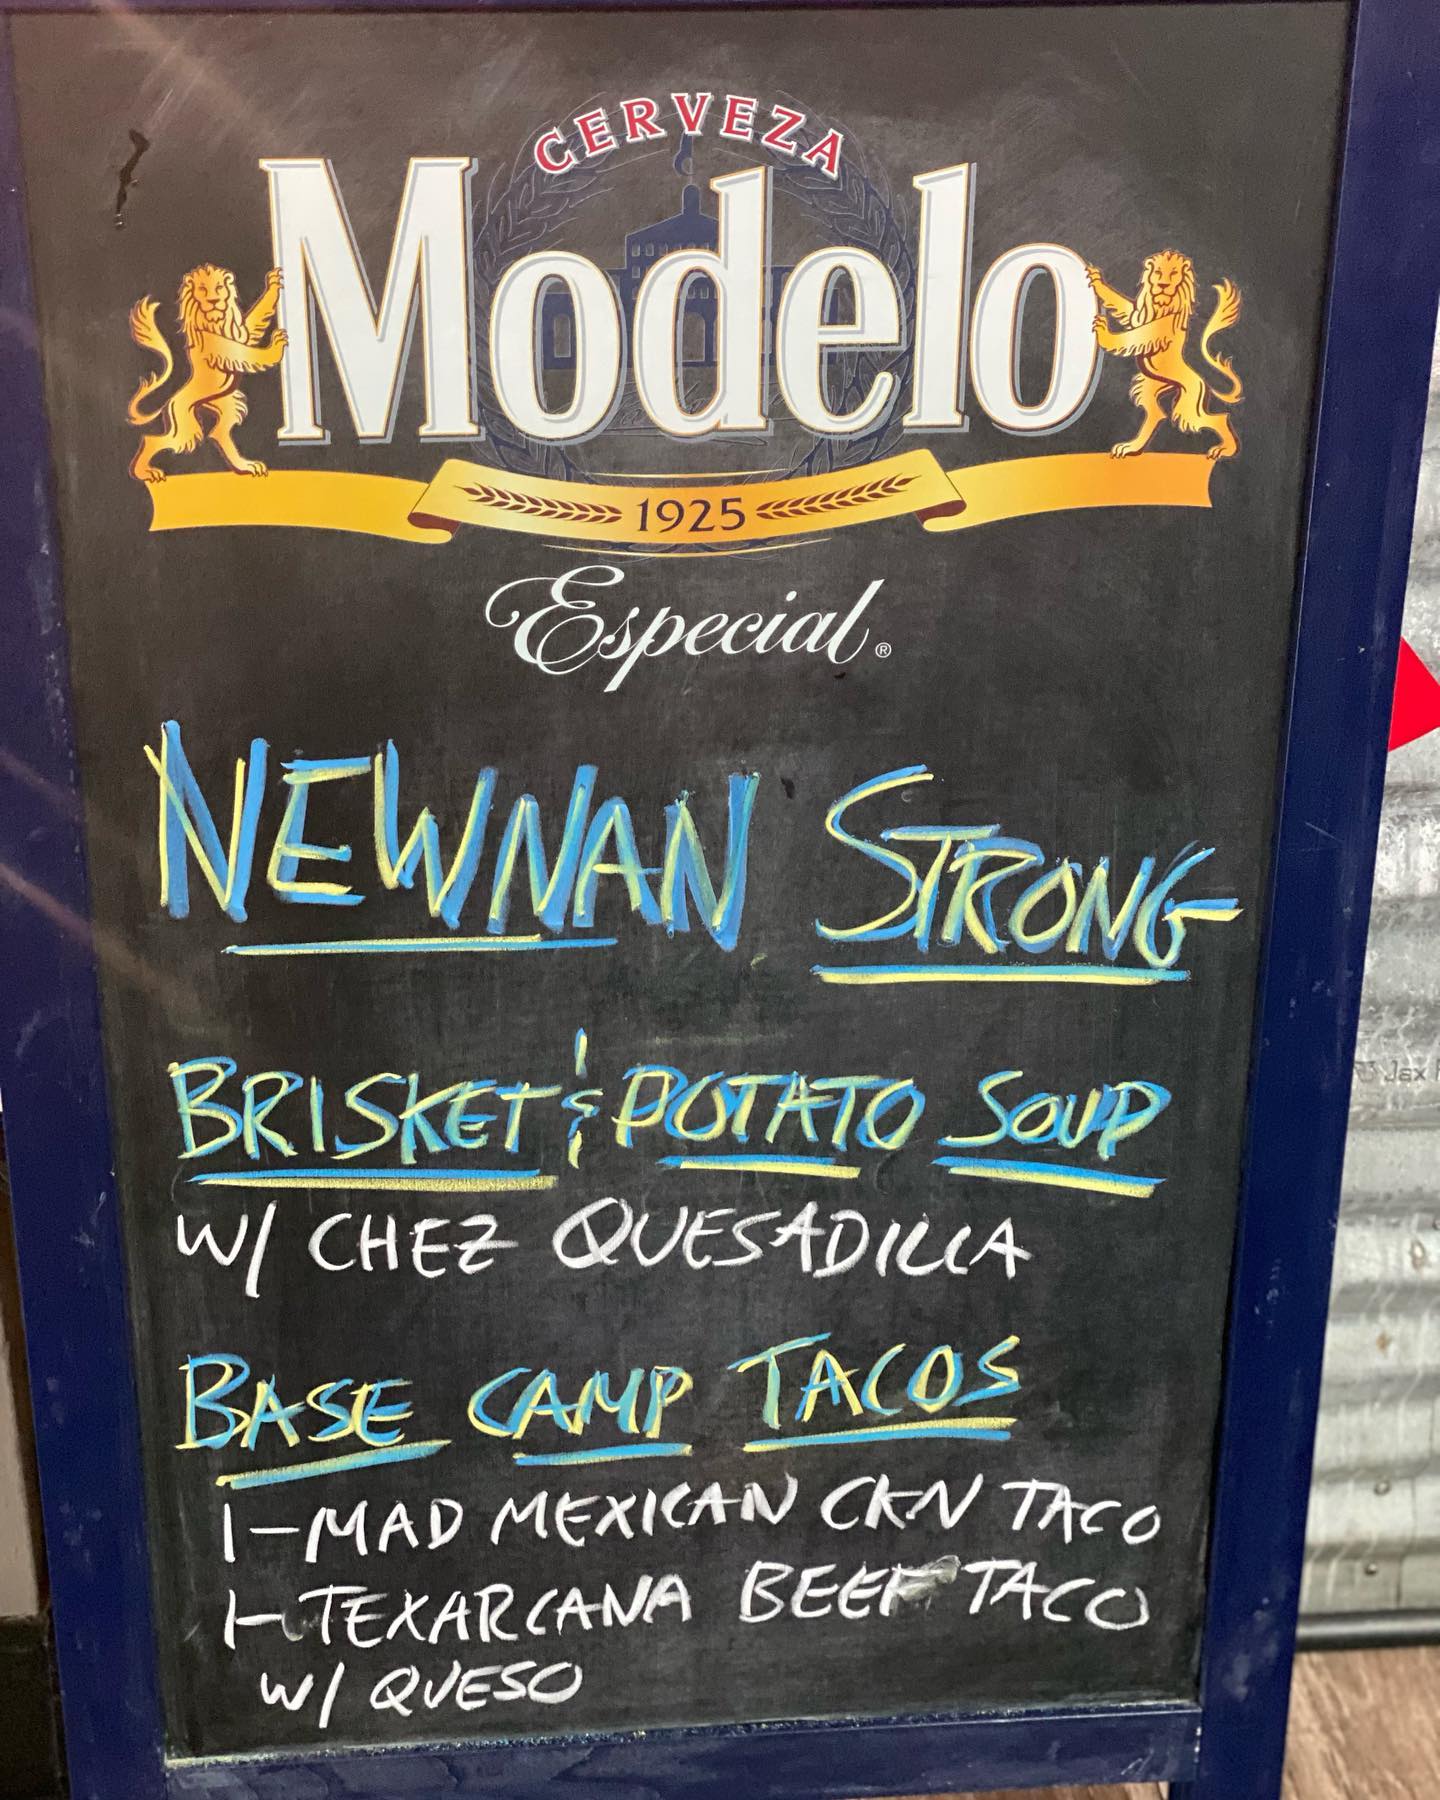 CERVEZA
Modelo
1925
Especial®
NEWNAN STRONG
BRISKET & POTATO SOUP
W/ CHEZ QUESADILLA
BASE CAMP TACOS
1-MAD MEXICAN CKN TACO
1-TEXARCANA BEEF TACO
W/ QUESO
Jax